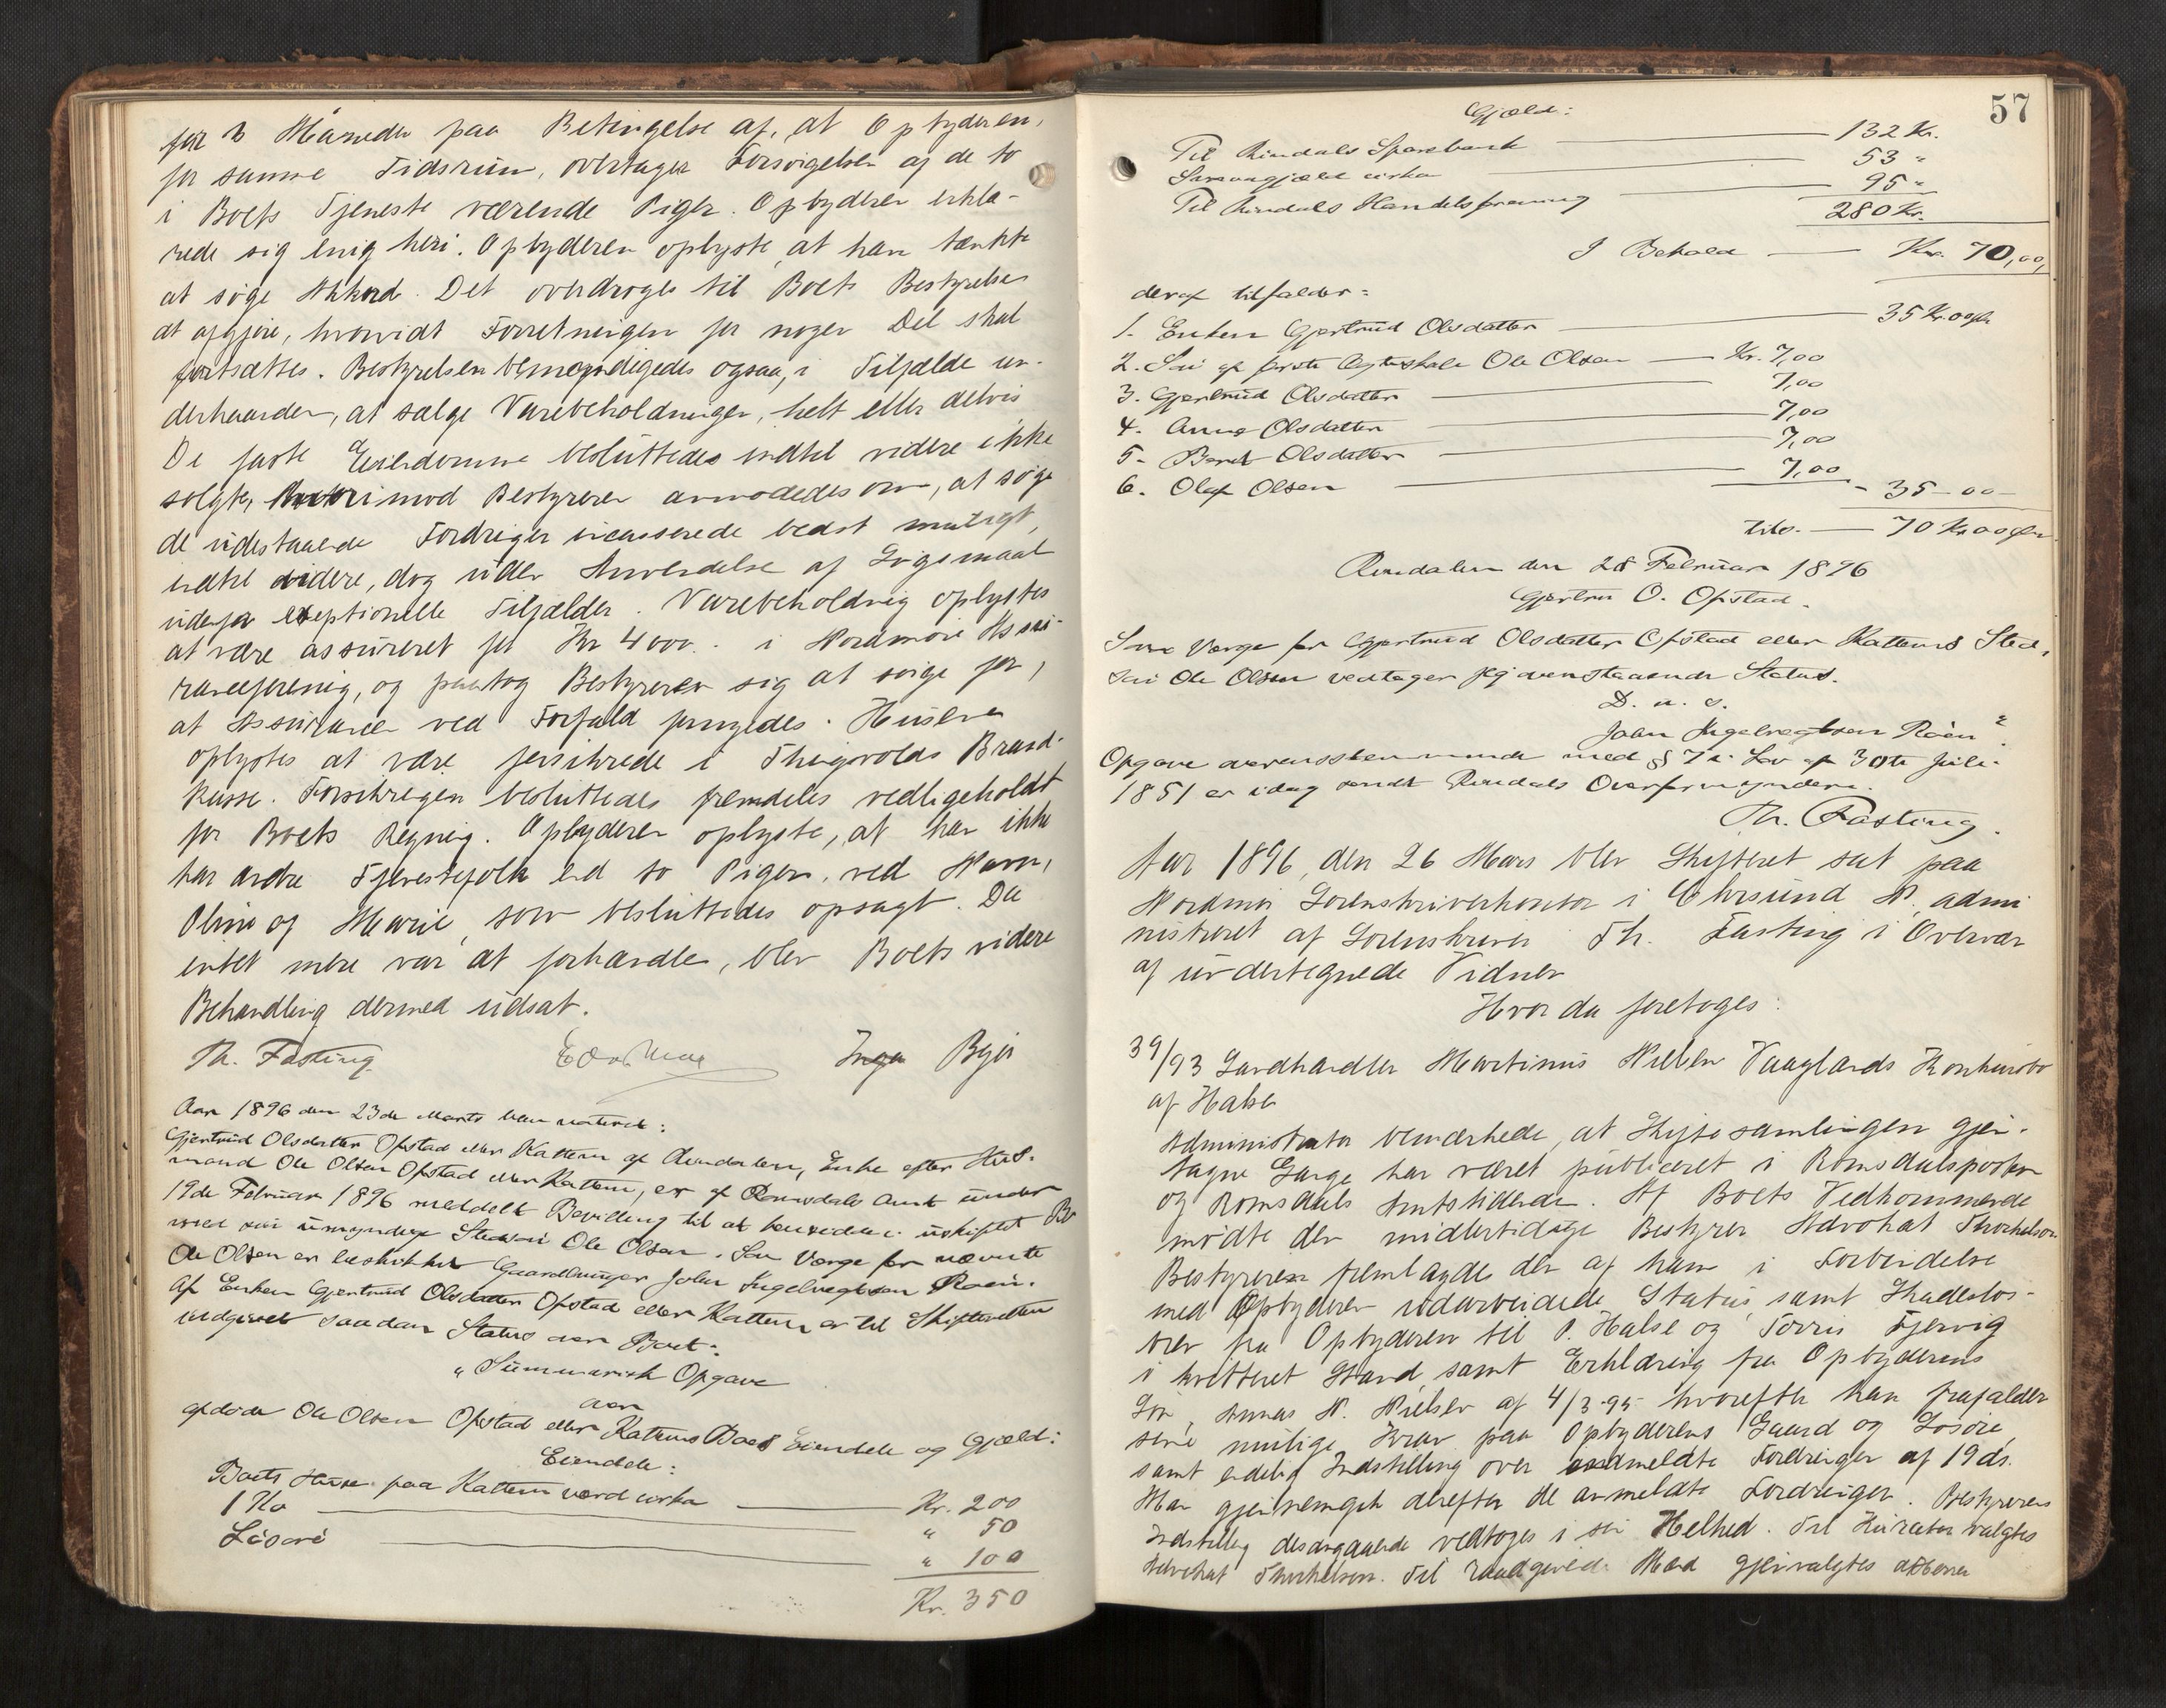 for 3 Maaneder paa Betingelse af, at Opbyderen,
for samme Tidsrum, overtager Forsørgelsen af de to
i Boets Tjeneste værende Piger. Opbyderen erklæ-
rede sig enig heri. Opbyderen oplyste, at han tænkte
at søge Akkord. Det overdroges til Boets Bestyrelse
at afgjøre, hvorvidt Forretningen for nogen Del skal
fortsættes. Bestyrelsen bemyndigedes ogsaa, i Tilfælde un-
derhaanden, at sælge Varebeholdningen, helt eller delvis
De faste Eiendomme besluttedes indtil videre ikke
solgte, derimod Bestyreren anmodedes om, at søge
de udestaaende Fordringer incasserede bedst muligt,
indtil videre, dog uden Anvendelse af Søgsmaal
udenfor exeptionelle Tilfælder. Varebeholdning oplystes
at være assureret for Kr 4000.- i Nordmøre Assu-
ranceforening, og paatog Bestyreren sig at sørge for,
at Assurancen ved Forfald fornyedes. Husene
oplystes at være forsikrede i Thingvolds Brand-
kasse. Forsikringen besluttedes fremdeles vedligeholdt
for Boets Regning. Opbyderen oplyste, at han ikke
har andre Tjenestefolk end to Piger, ved Navn,
Oline og Marie, som besluttedes opsagt. Da
intet mere var at forhandle, blev Boets videre
Behandling dermed udsat.
Th. Fasting Inga Bye
Aar 1896 den 23de Marts blev noteret:
Gjertrud Olsdatter Opstad eller Kattem af Rindalen, Enke efter Hus-
mand Ole Olsen Opstad eller Kattem, er af Romsdals Amt under
19de Februar 1896 meddelt Bevilling til at hensidde i uskiftet Bo
med sin umyndige Stedsøn Ole Olsen. Som Værge for nævnte
Ole Olsen er beskikket Gaardbruger John Ingebrigtsen Røen.
Af Enken Gjertrud Olsdatter Opstad eller Kattem er til Skifteretten
indgivet saadan Status over Boet:
"Summarisk Opgave
over
afdøde Ole Olsen Opstad eller Kattems Boes Eiendele og Gjæld:
Eiendele:
Boets Huse paa Kattem værd cirka Kr. 200
1 Ko " 50
Løsøre " 100
Kr. 350
57
Gjæld:
Til Rindals Sparebank 132 Kr.
Smaagjæld cirka 53 "
Til Rindals Handelsforening 95 "
280 Kr.
I Behold Kr. 70,00,
deraf tilfalder:
1. Enken Gjertrud Olsdatter 35 Kr. 00 Øre
2. Søn af første Ægteskab Ole Olsen Kr. 7,00
3. Gjertrud Olsdatter 7,00
4. Anne Olsdatter 7,00
5. Beret Olsdatter 7,00
6. Olaf Olsen 7,00 - 35 - 00 -
tils. 70 Kr 00 Øre
Rindalen den 28 Februar 1896
Gjertru O. Opstad.
Som Værge for Gjertrud Olsdatter Opstad eller Kattems Sted-
søn Ole Olsen vedtager jeg ovenstaaende Status.
D. u. s.
John Ingebrigtsen Røen"
Opgave overensstemmende med § 7 i Lov af 30te Juli
1851 er idag sendt Rindals Overformynderi.
Th. Fasting.
Aar 1896, den 26 Mars blev Skifteret sat paa
Nordmør Sorenskriverkontor i Chrsund N. admi
nistreret af Sorenskriver Th. Fasting i Overvær
af undertegnede Vidner
Hvor da foretoges:
39/93 Landhandler Martinus Nielsen Vaaglands Konkursbo
af Halse
Administrator bemærkede, at Skiftesamlingen gjen-
tagne Gange har været publiceret i Romsdalsposten
og Romsdals Amtstidende. Af Boets Vedkommende
mødte den midlertidige Bestyrer Advokat Thorkelson
Bestyreren fremlagde den af ham i Forbindelse
med Opbyderen udarbeidede Status, samt Skadesløs-
brev fra Opbyderen til P. Halse og Torris Fjervig
i kvitteret Stand samt Erklæring fra Opbyderens
Søn, Annas N. Nielsen af 4/3-95 hvorefter han frafalder
sine mulige Krav paa Opbyderens Gaard og Løsøre,
samt endelig Indstilling over anmeldte Fordringer af 19 ds.
Man gjennemgik derefter de anmeldte Fordringer. Bestyrerens
Indstilling desangaaende vedtoges i sin Helhed. Til Kurator valgtes
Advokat Thorkelson. Til raadgivende Mænd gjenvalgtes